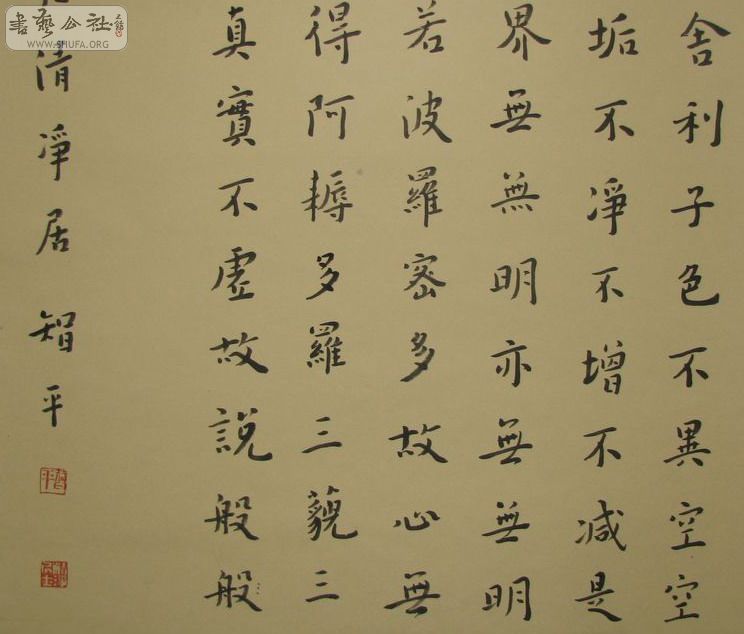 舍利子色不異空空
垢不凈不增不减是
界無無明亦無無明
若波羅密多故心無
得阿耨多羅三藐三
真實不虛故說般般
清凈居智平
書藝公社
WWW.SHUFA.ORG